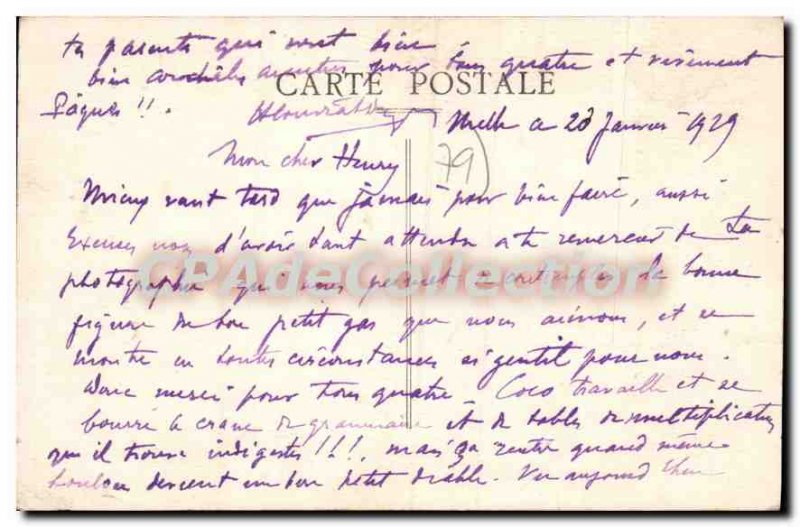 tes parents qui vont bien.
bien cordiales amitiés pour tous quatre et vivement
CARTE POSTALE
Pâques !!.
Melle ce 20 Janvier 1929
79
Mon cher Henry
Mieux vaut tard que jamais pour bien faire, aussi
Excuses nous d'avoir tant attendu à te remercier de ta
photographie qui nous permet de contempler la bonne
CPAdeCollection
figure de bon petit gas que nous aimons, et se
montre en toutes circonstances si gentil pour nous.
Donc merci pour tous quatre - Coco travaille et se
bourre le crane de grammaire et de tables de multiplication
qu'il trouve indigestes !!!, mais ça rentre quand même
devient un bon petit diable. Vu aujourd'hui